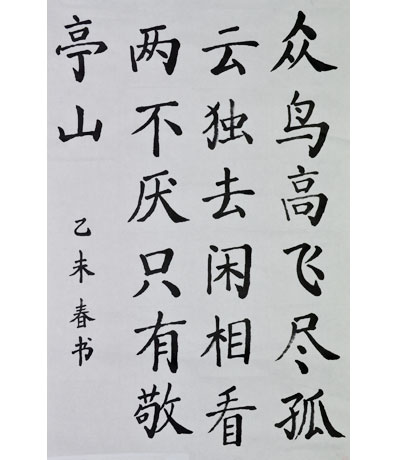 众鸟高飞尽孤
云独去闲相看
两不厌只有敬
亭山
乙未春书